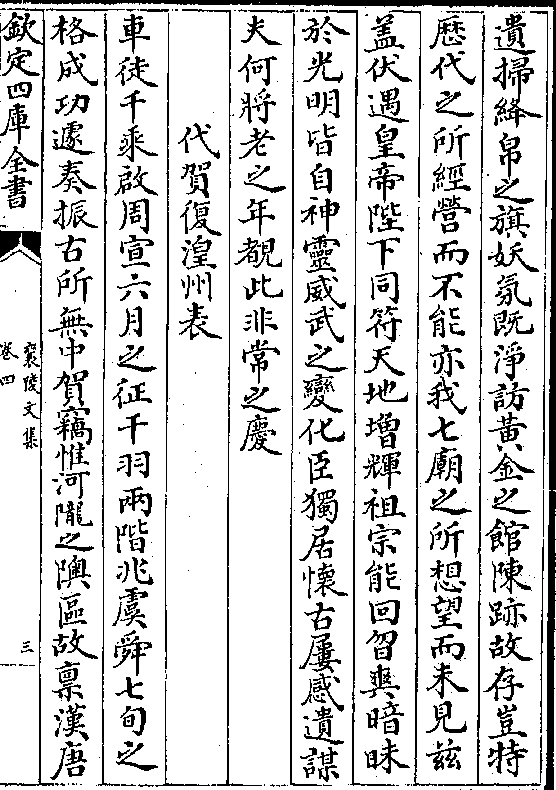 遺掃絳帛之旗妖氛既淨訪黃金之館陳跡故存豈特
歴代之所經營而不能亦我七廟之所想望而未見兹
盖伏遇皇帝陛下同符天地增輝祖宗能回曶爽暗昧
於光明皆自神靈威武之變化臣獨居懐古屢感遺謀
夫何將老之年覩此非常之慶
代賀復湟州表
車徒千乘啟周宣六月之征干羽兩階兆虞舜七旬之
格成功遽奏振古所無中賀竊惟河隴之隩區故禀漢唐
欽定四庫全書
襄陵文集
卷四
三